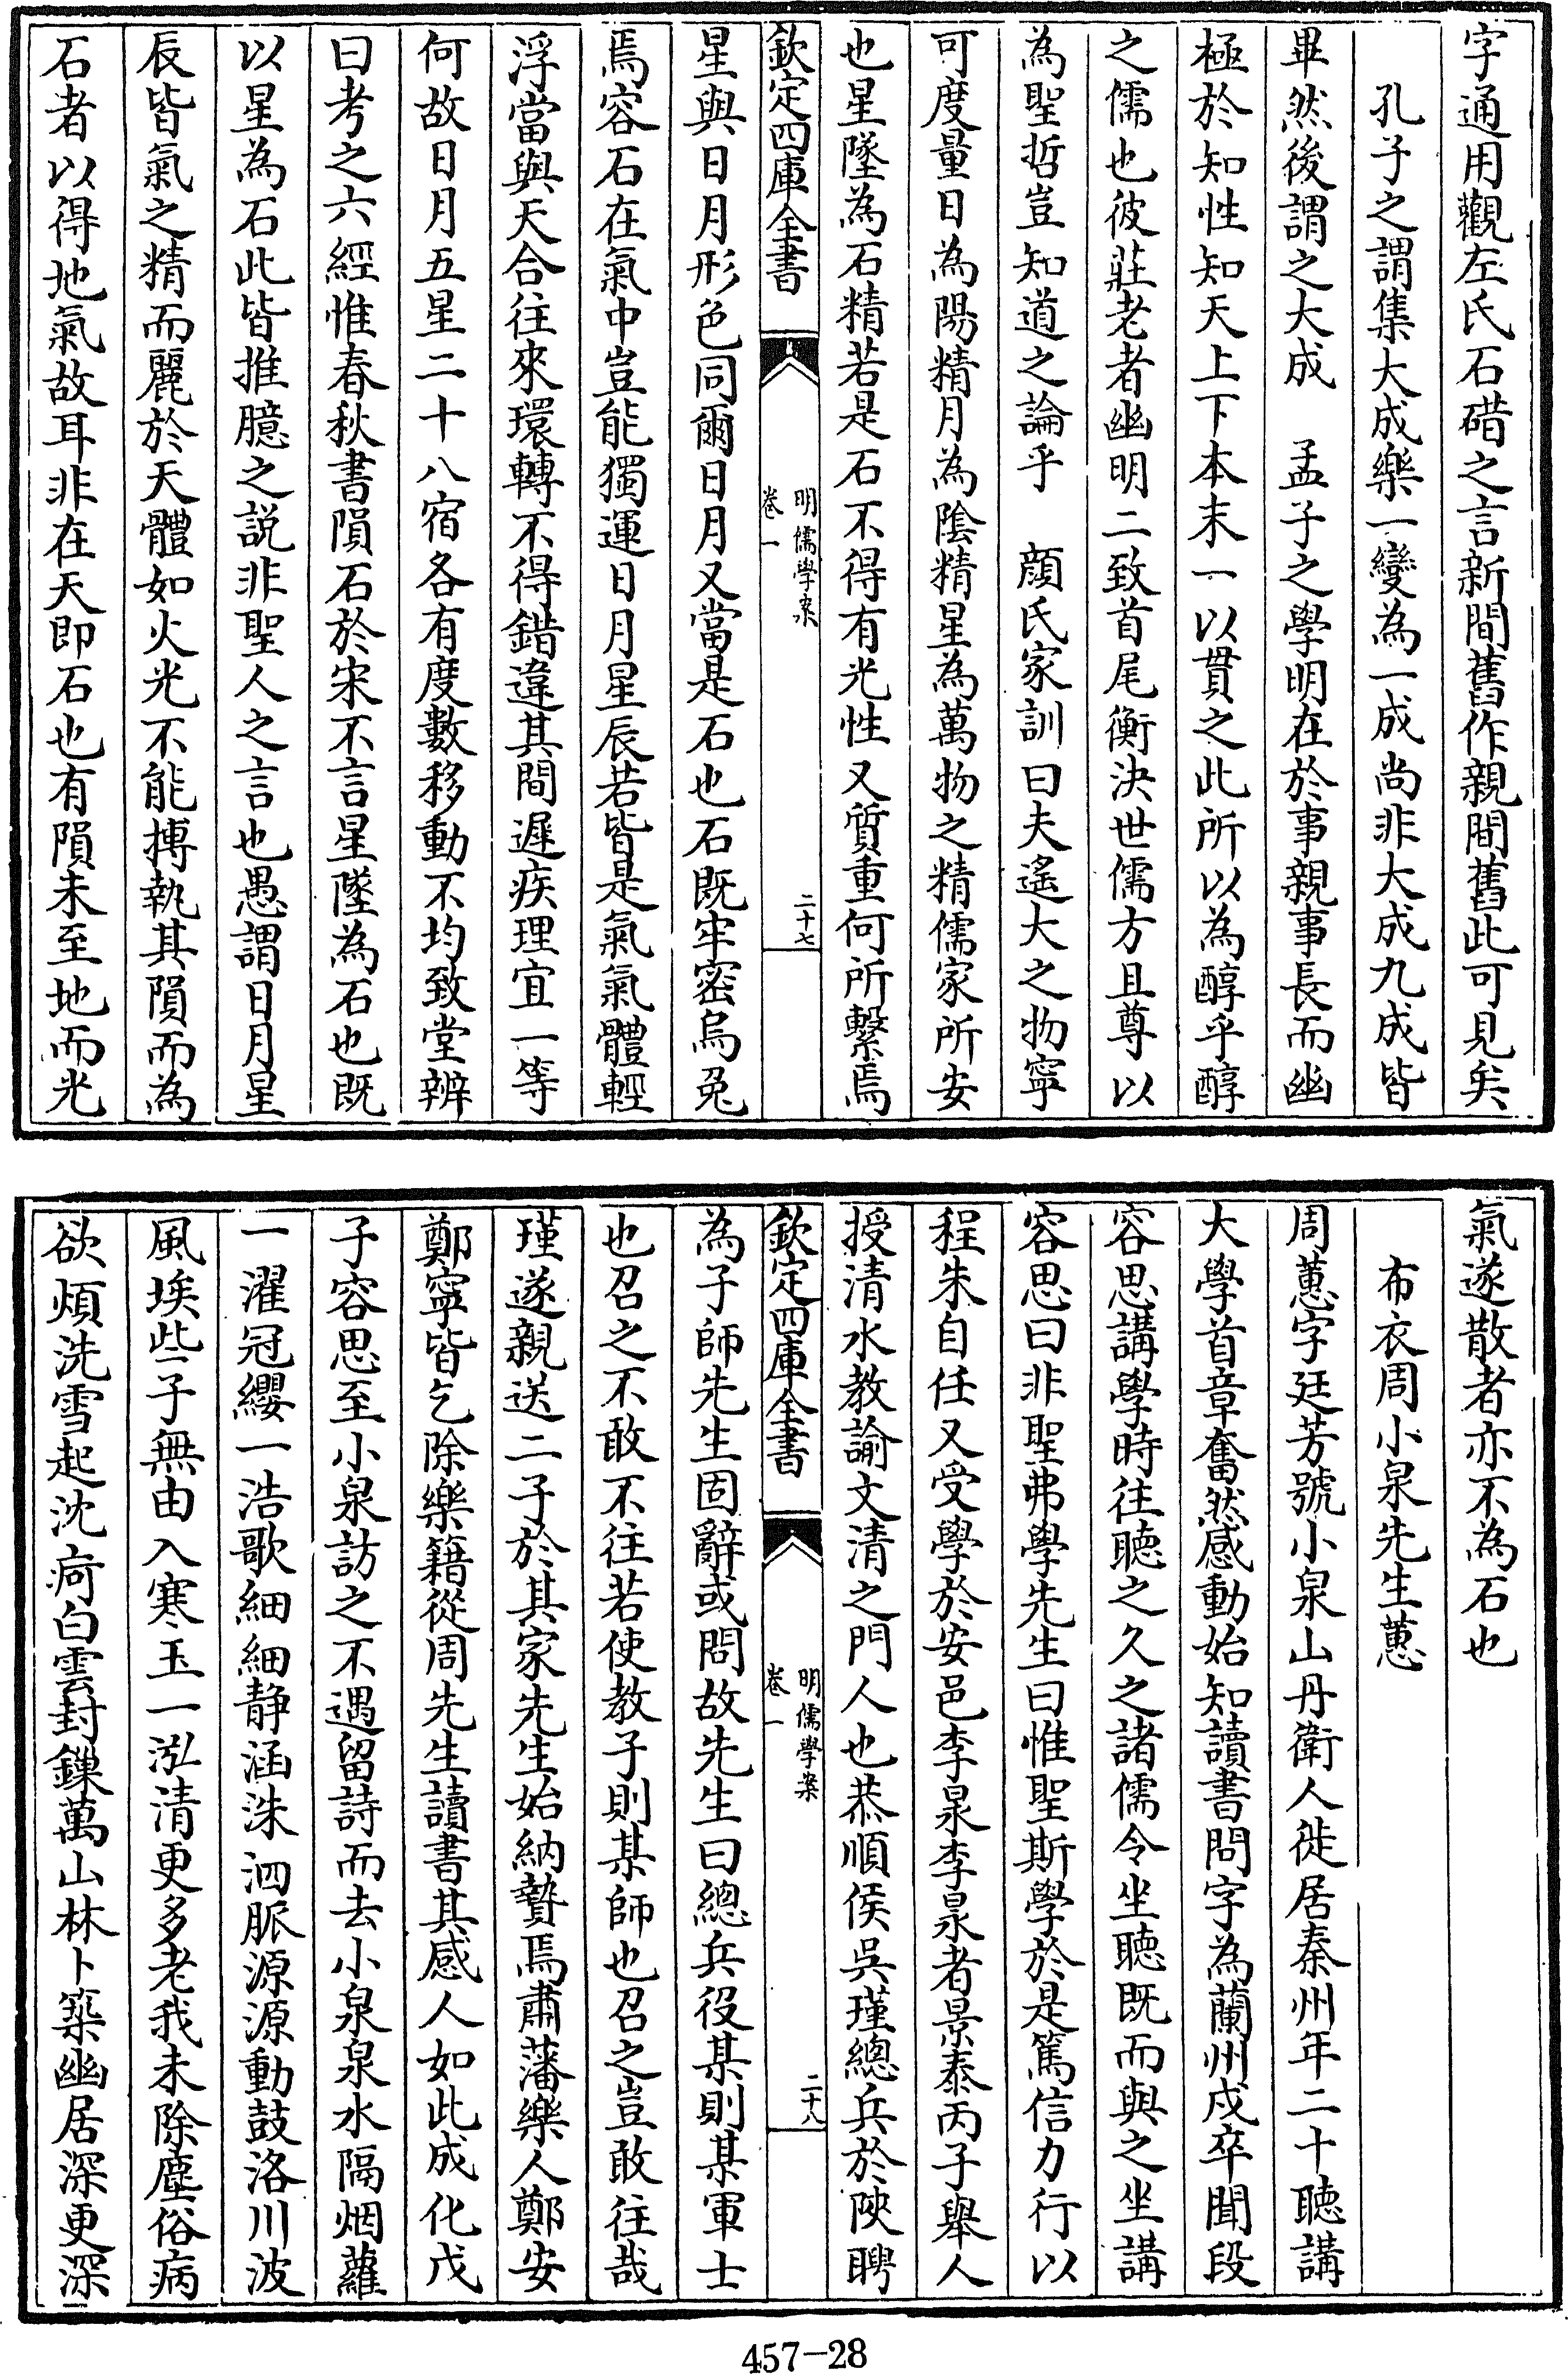 字通用觀左氏石碏之言新間舊作親間舊此可見矣
孔子之謂集大成樂一變為一成尚非大成九成皆
畢然後謂之大成　孟子之學明在於事親事長而幽
極於知性知天上下本末一以貫之此所以為醇乎醇
之儒也彼莊老者幽明二致首尾衡決世儒方且尊以
為聖哲豈知道之論乎　顔氏家訓曰夫遙大之物寧
可度量日為陽精月為陰精星為萬物之精儒家所安
也星墜為石精若是石不得有光性又質重何所繫焉
欽定四庫全書
明儒學案
卷一
二十七
星與日月形色同爾日月又當是石也石既牢密烏兔
焉容石在氣中豈能獨運日月星辰若皆是氣氣體輕
浮當與天合往來環轉不得錯違其間遲疾理宜一等
何故日月五星二十八宿各有度數移動不均致堂辨
曰考之六經惟春秋書隕石於宋不言星墜為石也既
以星為石此皆推臆之説非聖人之言也愚謂日月星
辰皆氣之精而麗於天體如火光不能摶執其隕而為
石者以得地氣故耳非在天即石也有隕未至地而光
氣遂散者亦不為石也
布衣周小泉先生蕙
周蕙字廷芳號小泉山丹衛人徙居秦州年二十聽講
大學首章奮然感動始知讀書問字為蘭州戍卒聞段
容思講學時往聽之久之諸儒令坐聽既而與之坐講
容思曰非聖弗學先生曰惟聖斯學於是篤信力行以
程朱自任又受學於安邑李㫤李㫤者景泰丙子舉人
授清水教諭文清之門人也恭順侯吳瑾總兵於陝聘
欽定四庫全書
明儒學案
卷一
二十八
為子師先生固辭或問故先生曰總兵役某則某軍士
也召之不敢不往若使教子則某師也召之豈敢往哉
瑾遂親送二子於其家先生始納贄焉肅藩樂人鄭安
鄭寧皆乞除樂籍從周先生讀書其感人如此成化戊
子容思至小泉訪之不遇留詩而去小泉泉水隔烟蘿
一濯冠纓一浩歌細細静涵洙泗脈源源動鼓洛川波
風埃些子無由入寒玉一泓清更多老我未除塵俗病
欲煩洗雪起沈疴白雲封鏁萬山林卜築幽居深更深
457-28